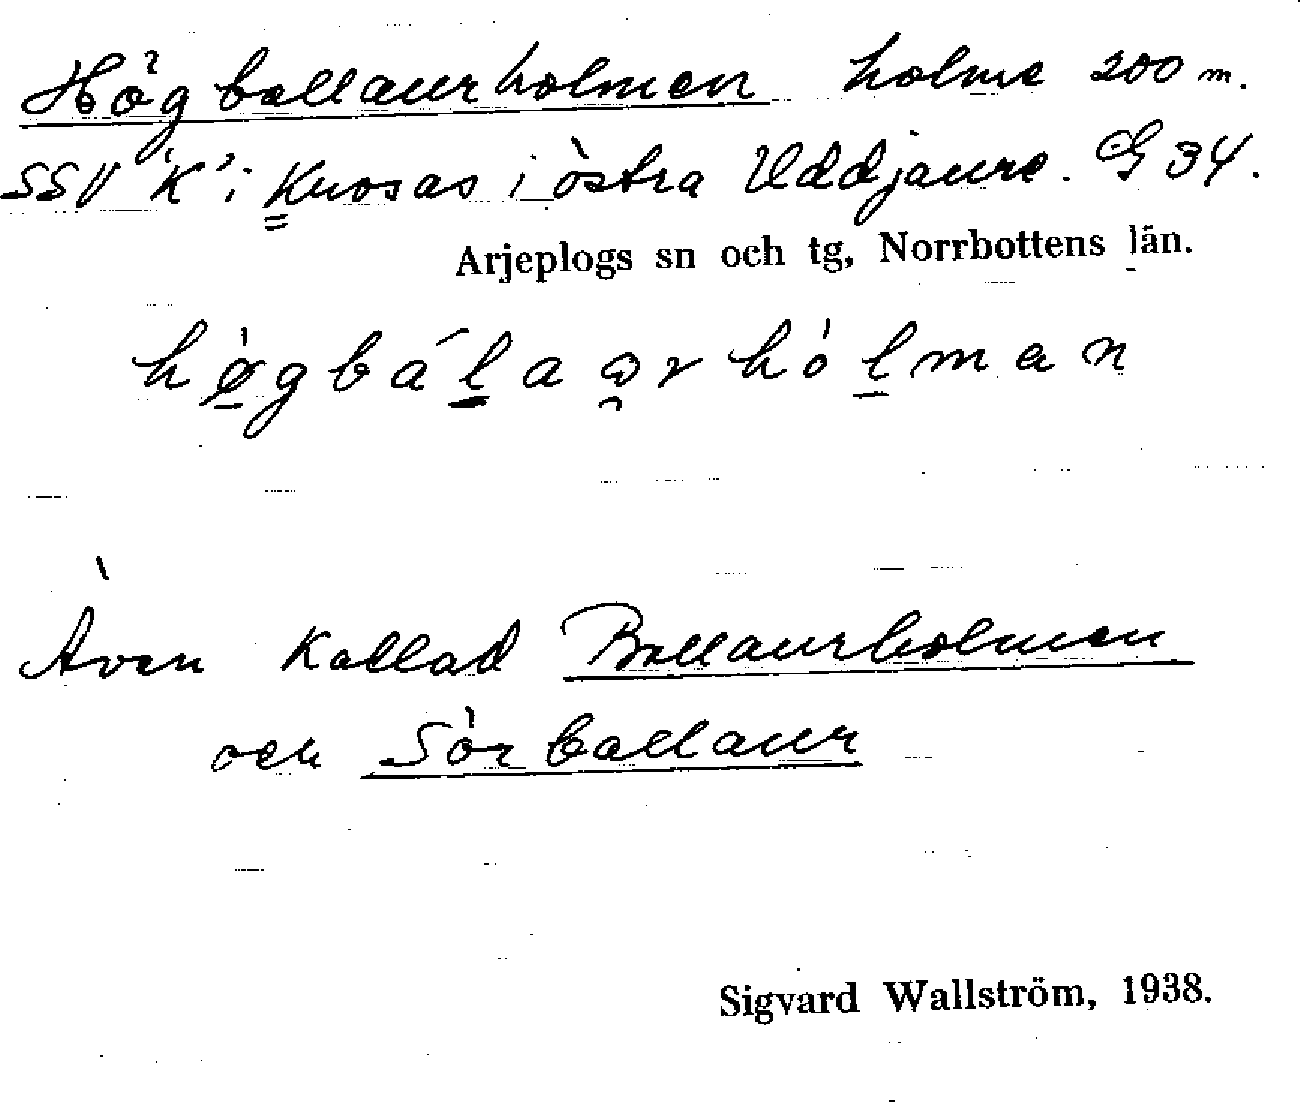 Högballaurholmen holme 200 m.
SSV "K" i Kuosas i östra Uddjaure. G 34.
Arjeplogs sn och tg, Norrbottens län.
høgbálaərhólman
Även kallad Ballaurholmen
och Sörballaur
Sigvard Wallström, 1938.